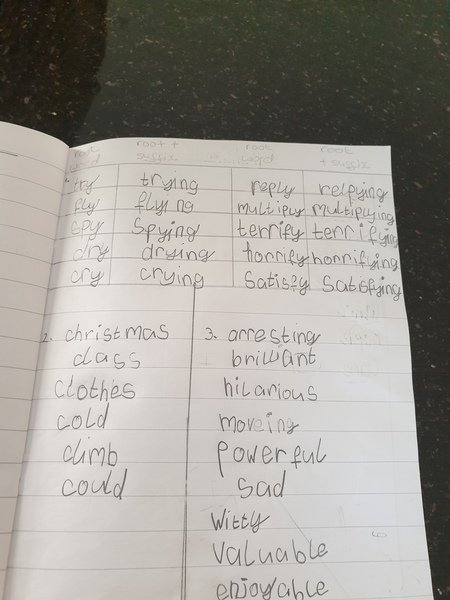 root root + root root
word suffix word + suffix
1. try trying reply relpying
fly flying multiply multiplying
spy Spying terrify terrifying
dry drying horrify horrifying
cry crying Satisfy Satisfying
2. christmas
class
clothes
cold
climb
could
3. arresting
brilliant
hilarious
moveing
powerful
sad
Witty
valuable
enjoyable